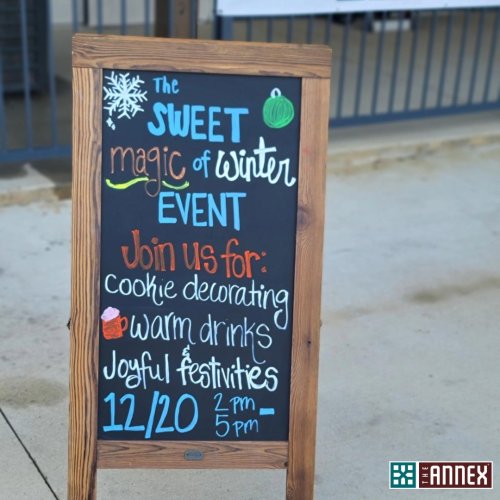 The
SWEET
magic of winter
EVENT
Join us for:
cookie decorating
warm drinks
&
Joyful festivities
12/20 2pm -
5pm
THE ANNEX